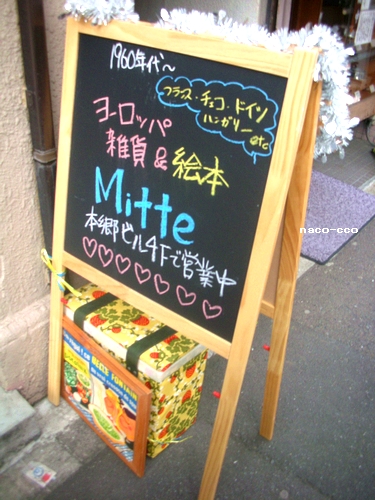 1960年代〜
フランス・チェコ・ドイツ
ハンガリー
etc
ヨーロッパ
雑貨&絵本
Mitte
本郷ビル4Fで営業中
naco-cco